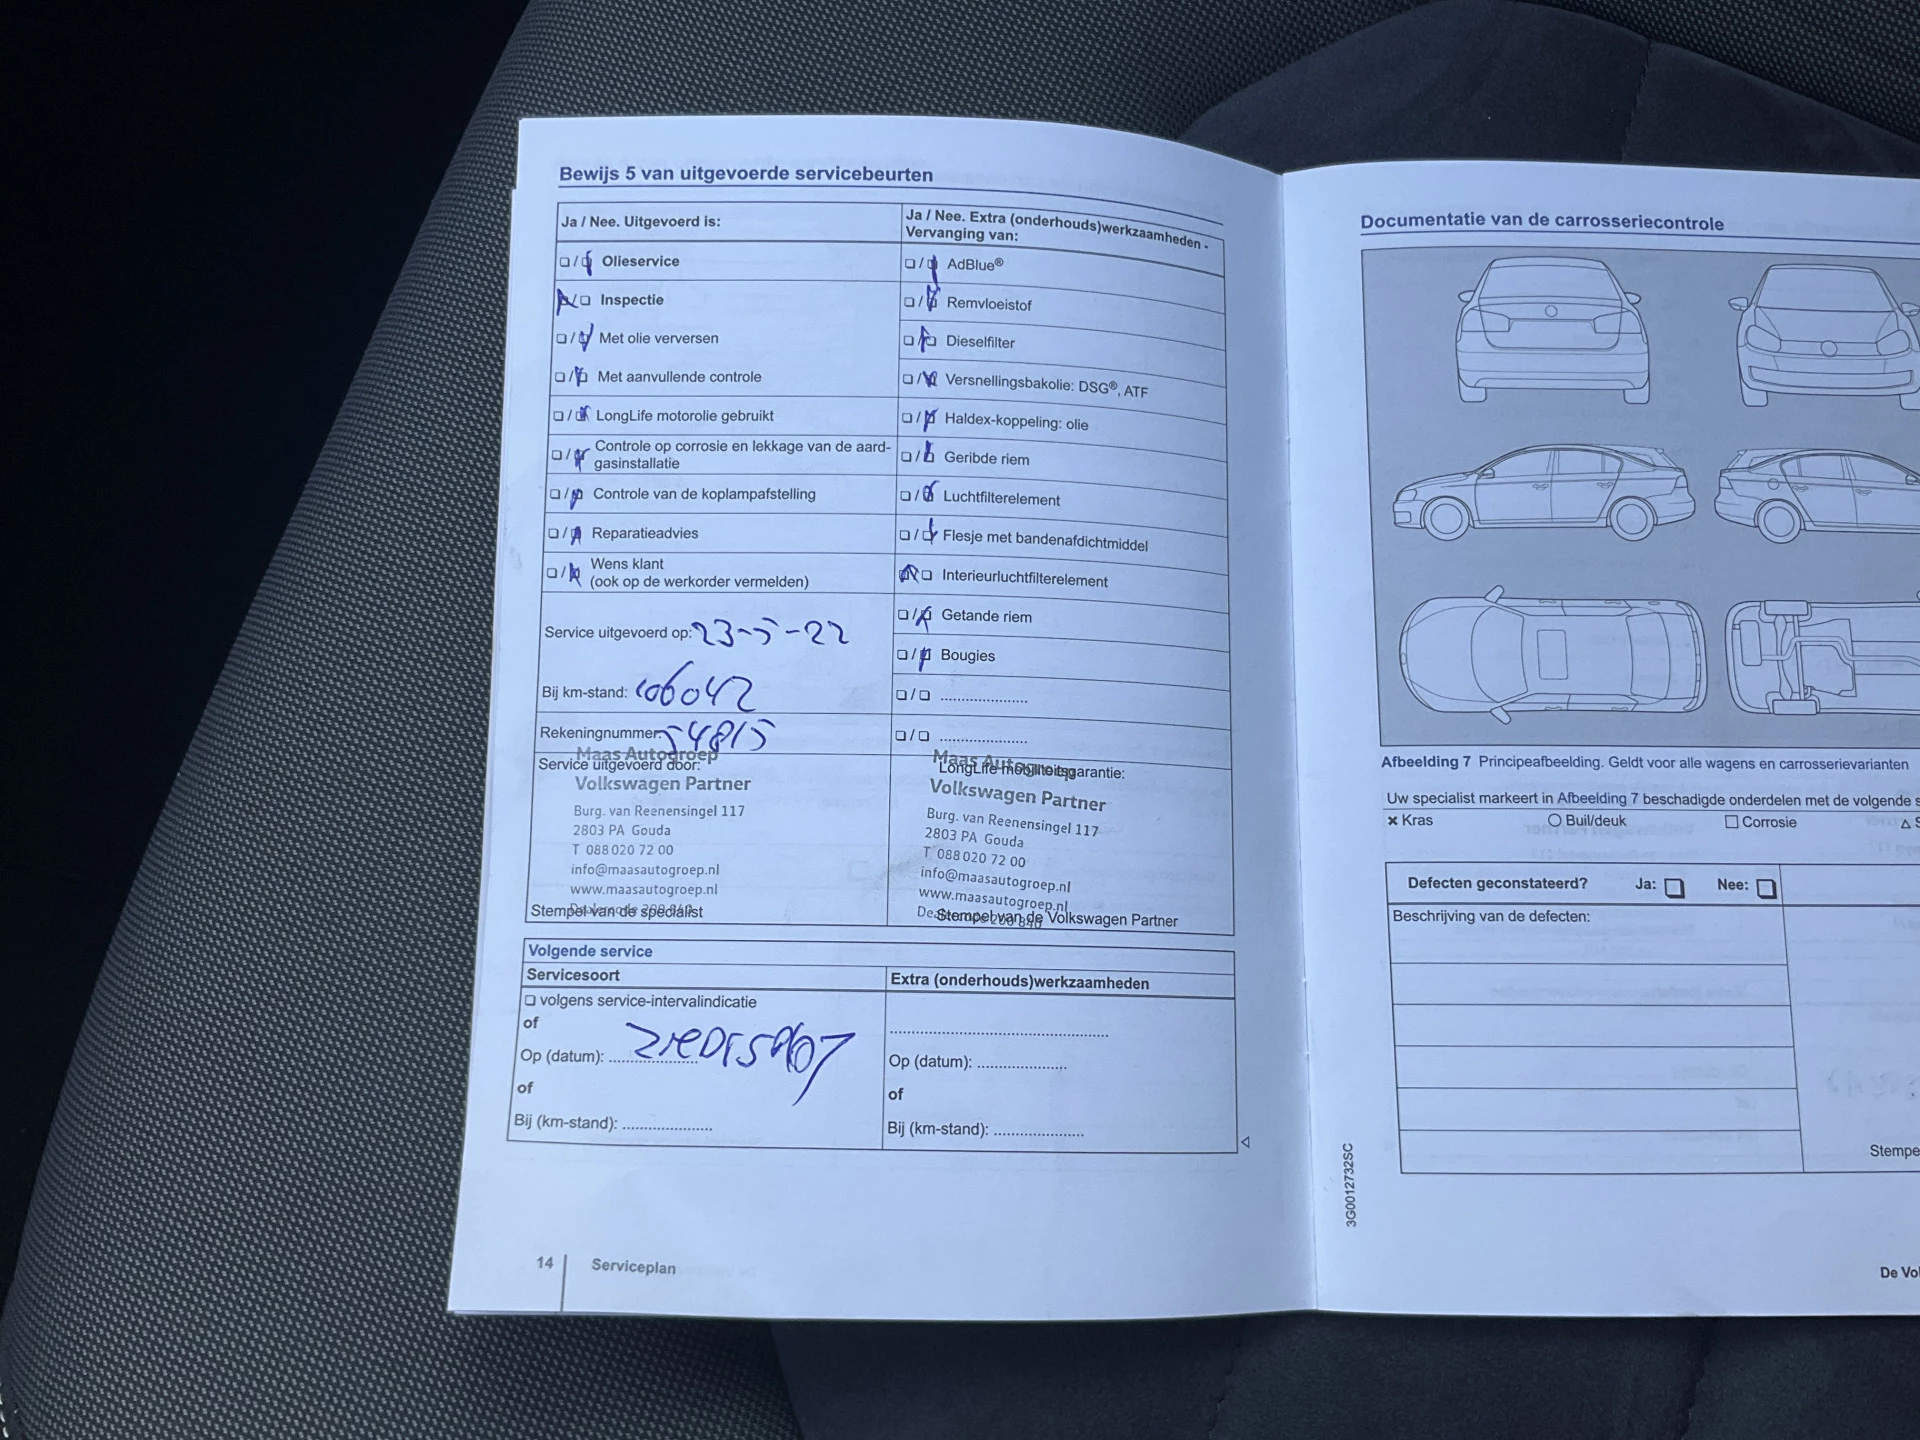 Bewijs 5 van uitgevoerde servicebeurten
Ja / Nee. Uitgevoerd is:
Olieservice
Inspectie
Met olie verversen
Met aanvullende controle
LongLife motorolie gebruikt
Controle op corrosie en lekkage van de aard-
gasinstallatie
Controle van de koplampafstelling
Reparatieadvies
Wens klant
(ook op de werkorder vermelden)
Service uitgevoerd op: 23-5-22
Bij km-stand: 106042
Rekeningnummer: 54815
Service uitgevoerd door:
Maas Autogroep
Volkswagen Partner
Burg. van Reenensingel 117
2803 PA Gouda
T 088 020 72 00
info@maasautogroep.nl
www.maasautogroep.nl
Stempel van de specialist
Ja / Nee. Extra (onderhouds)werkzaamheden -
Vervanging van:
AdBlue®
Remvloeistof
Dieselfilter
Versnellingsbakolie: DSG®, ATF
Haldex-koppeling: olie
Geribde riem
Luchtfilterelement
Flesje met bandenafdichtmiddel
Interieurluchtfilterelement
Getande riem
Bougies
Maas Autogroep
LongLife mobiliteitsgarantie:
Volkswagen Partner
Burg. van Reenensingel 117
2803 PA Gouda
T 088 020 72 00
info@maasautogroep.nl
www.maasautogroep.nl
Stempel van de Volkswagen Partner
Volgende service
Servicesoort
volgens service-intervalindicatie
of
Op (datum):
of
Bij (km-stand):
Extra (onderhouds)werkzaamheden
Op (datum):
of
Bij (km-stand):
14 Serviceplan
Documentatie van de carrosseriecontrole
Afbeelding 7 Principeafbeelding. Geldt voor alle wagens en carrosserievarianten
Uw specialist markeert in Afbeelding 7 beschadigde onderdelen met de volgende s
Kras
Buil/deuk
Corrosie
Defecten geconstateerd? Ja: Nee:
Beschrijving van de defecten:
Stempe
3G0012732SC
De Vol